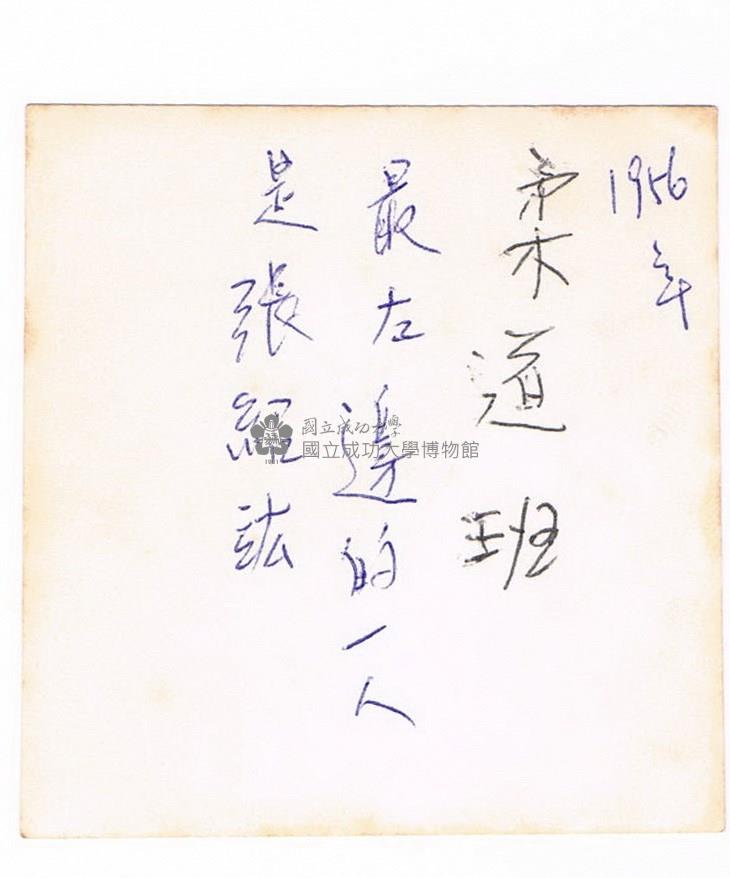 1956年
柔道班
最左邊的一人
是張經竑
國立成功大學
國立成功大學博物館
1931